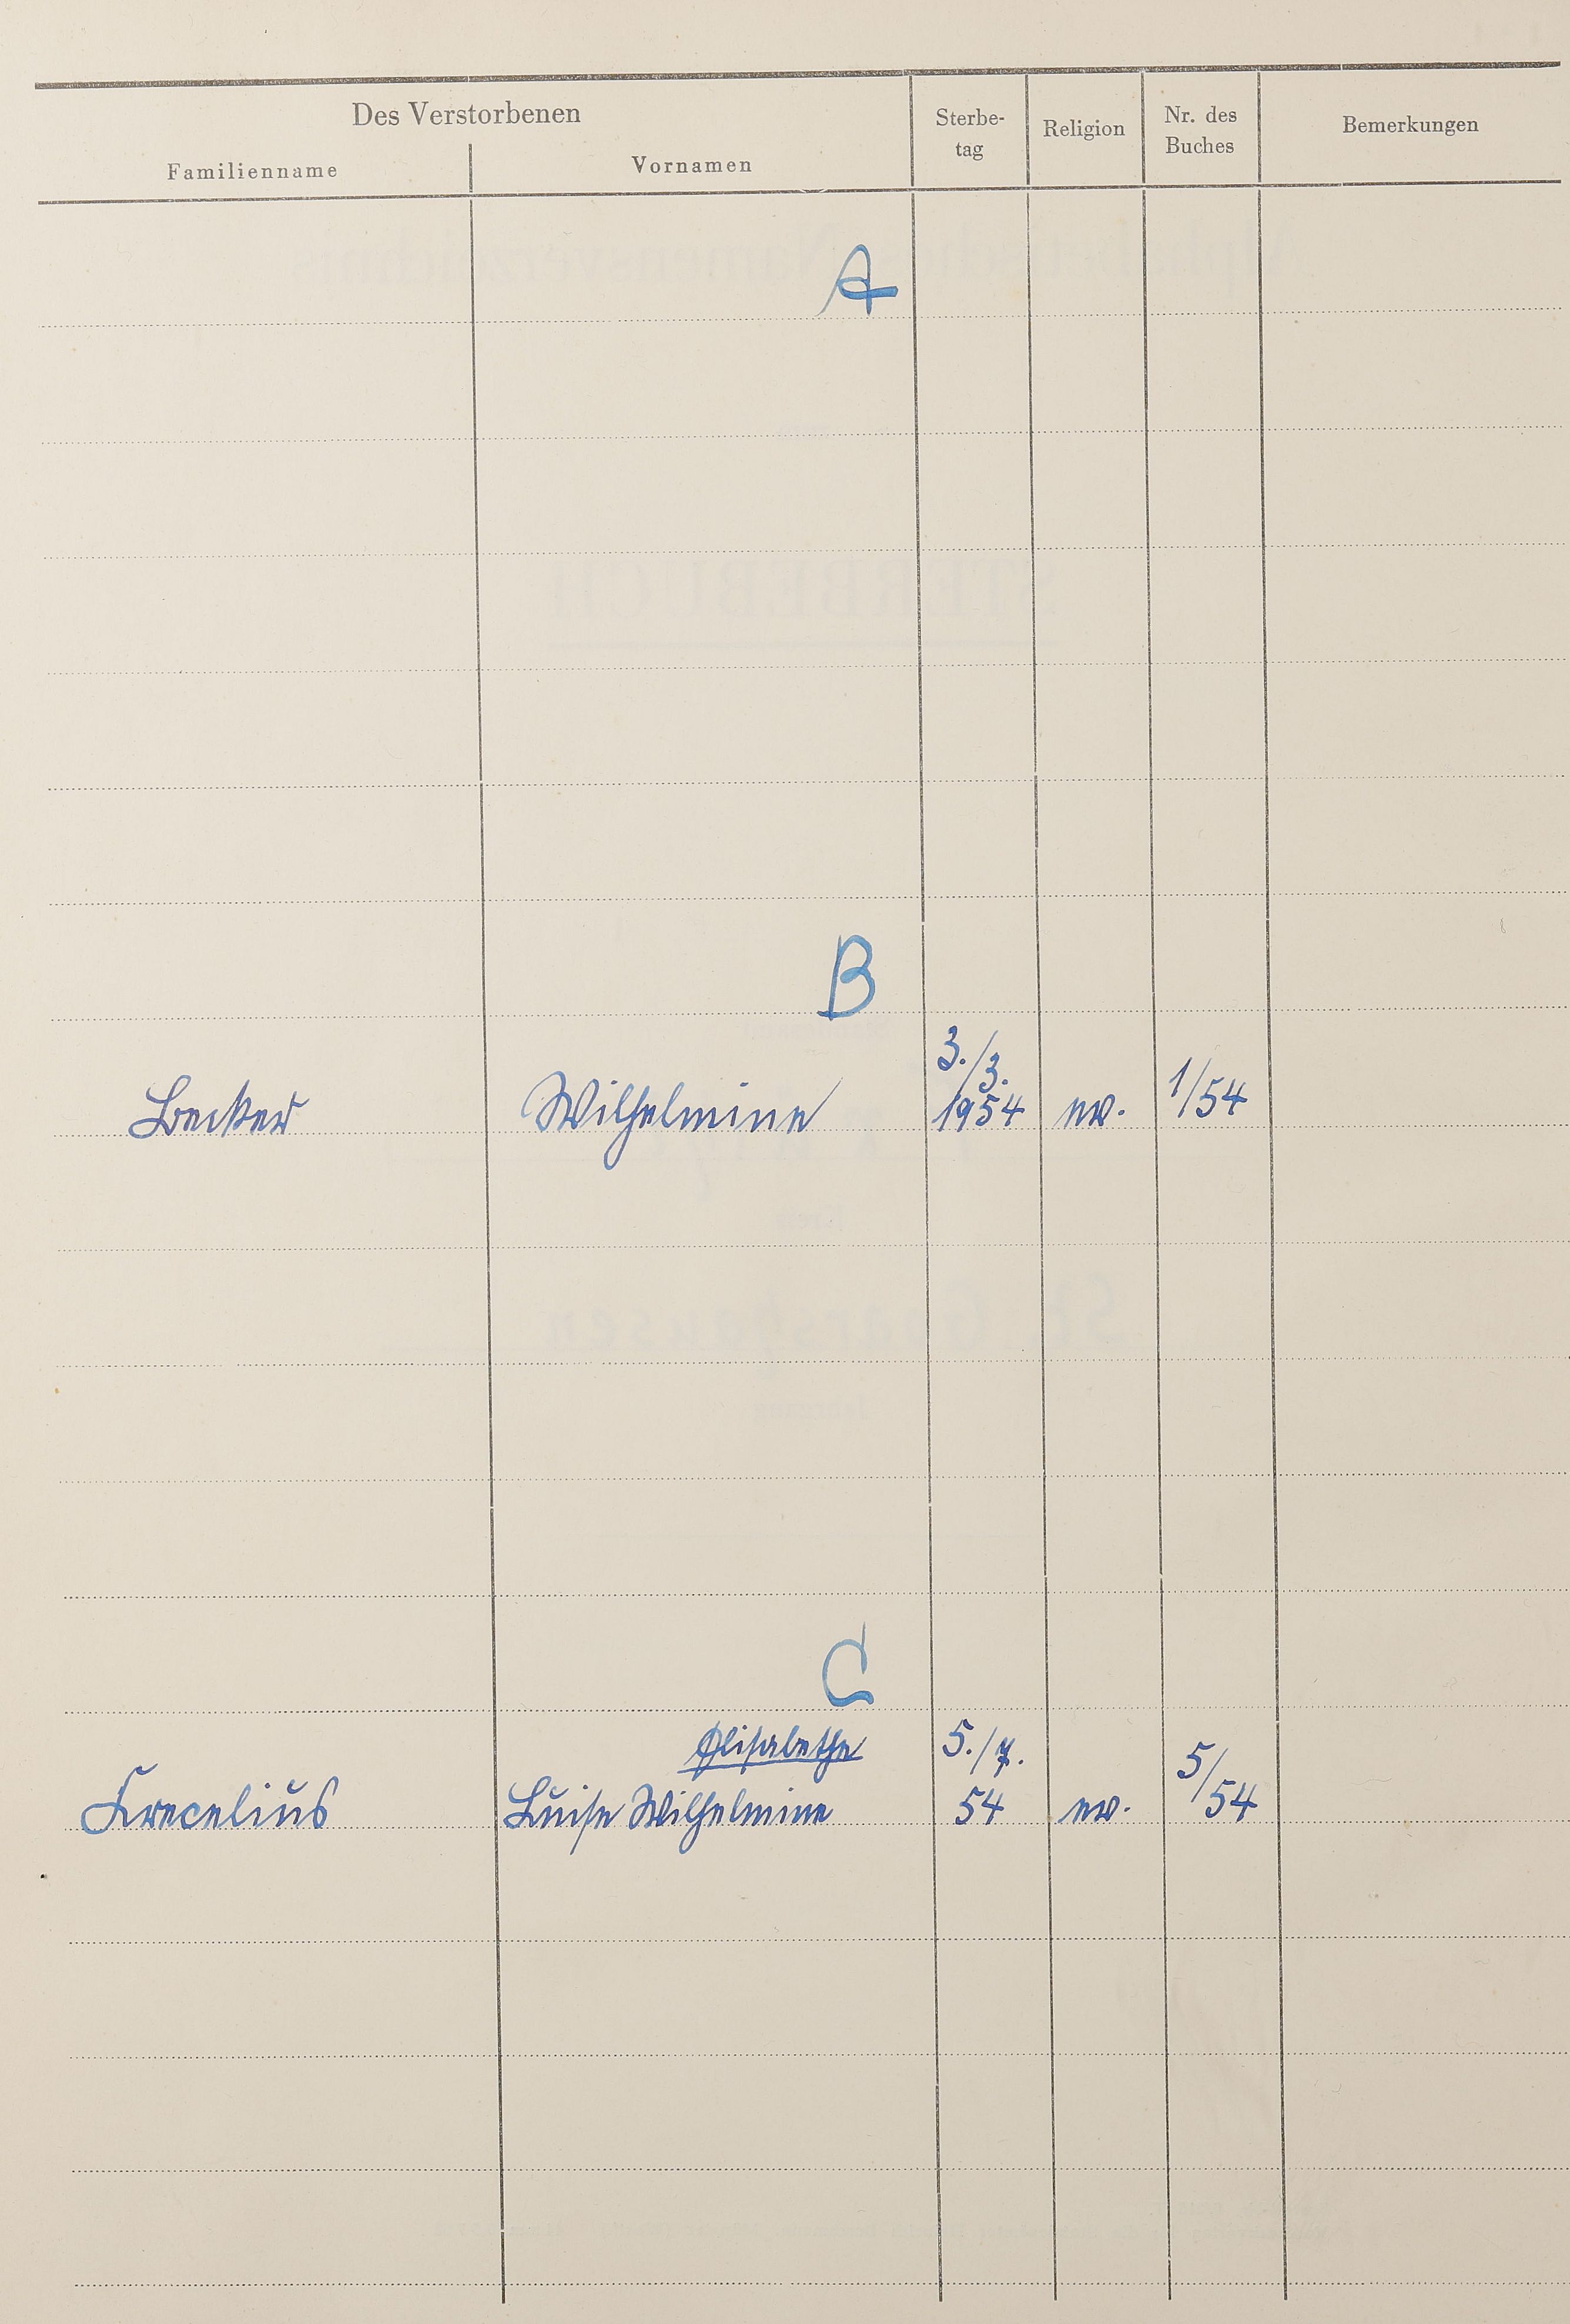 Des Verstorbenen
Familienname Vornamen Sterbe-
tag Religion Nr. des
Buches Bemerkungen
A
B
Becker Wilhelmine 3./3.
1954 ev. 1/54
C
Elisabethe
Crecelius Luise Wilhelmine 5./7.
54 ev. 5/54